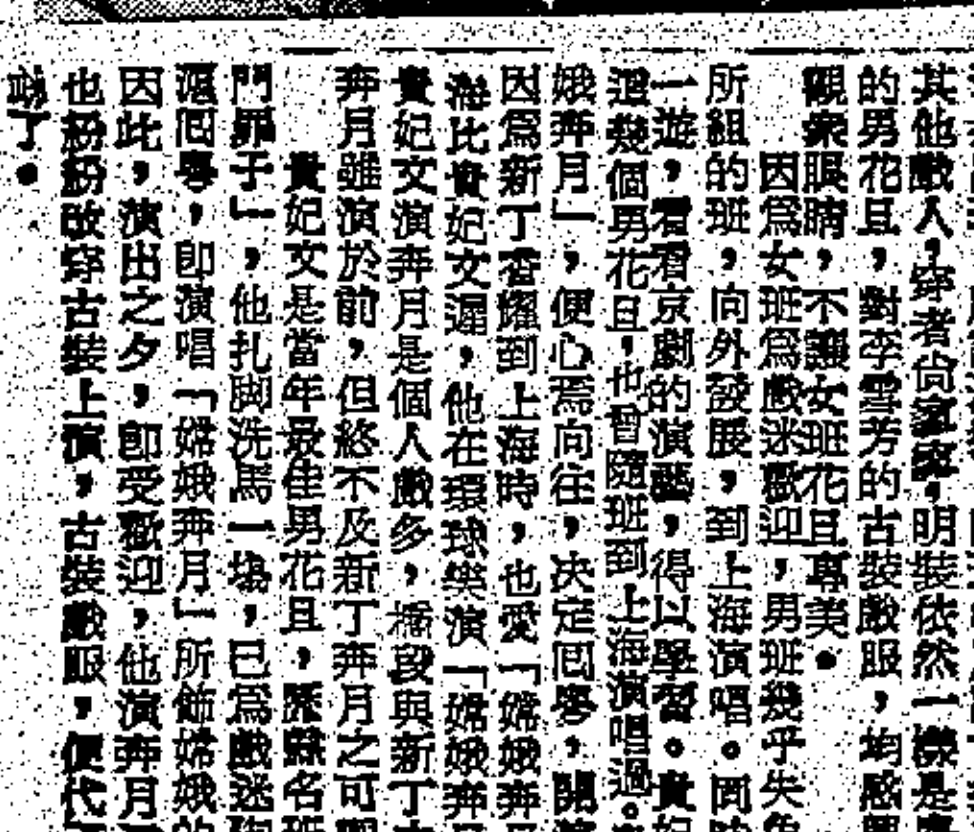 其他戲人，穿者尚寥寥，明裝依然一樣是
的男花旦，對李雪芳的古裝戲服，均感
觀衆眼睛，不讓女班花旦專美。
因爲女班爲戲迷歡迎，男班幾乎失
所組的班，向外發展，到上海演唱。同
一遊，看看京劇的演藝，得以學習。貴妃
這幾個男花旦，也曾隨班到上海演唱過。
娥奔月」，便心焉向往，決定囘粤，開
因爲新丁香耀到上海時，也愛「嫦娥奔
海比貴妃文遲，他在環球樂演「嫦娥奔
貴妃文演奔月是個人戲多，橋段與新丁
奔月雖演於前，但終不及新丁奔月之可
貴妃文是當年最佳男花旦，歷隸名班
門罪子」，他扎脚洗馬一場，已爲戲迷
返囘粤，卽演唱「嫦娥奔月」所飾嫦娥的
因此，演出之夕，卽受歡迎，他演奔月
也紛紛改穿古裝上演，古裝戲服，便代
了。